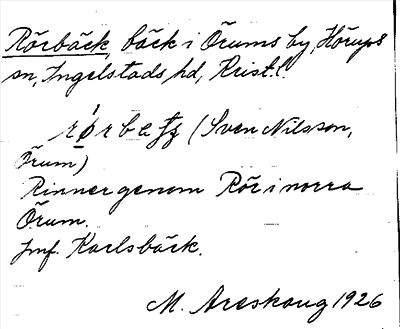 Rörbäck, bäck i Örums by, Hörups
sn, Ingelstads hd, Krist. l.
(Sven Nilsson,
Örum)
Rinner genom Rör i norra
Örum.
Jmf. Karlsbäck.
M. Areskoug 1926